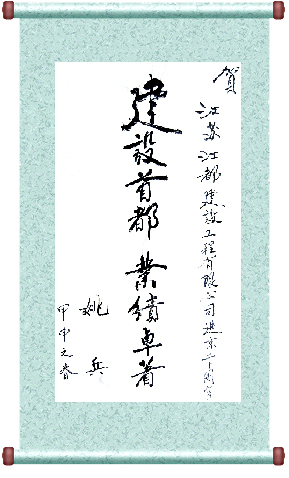 賀
江苏江都建設工程有限公司進京二十周年
建設首都 業績卓著
姚兵
甲申之春